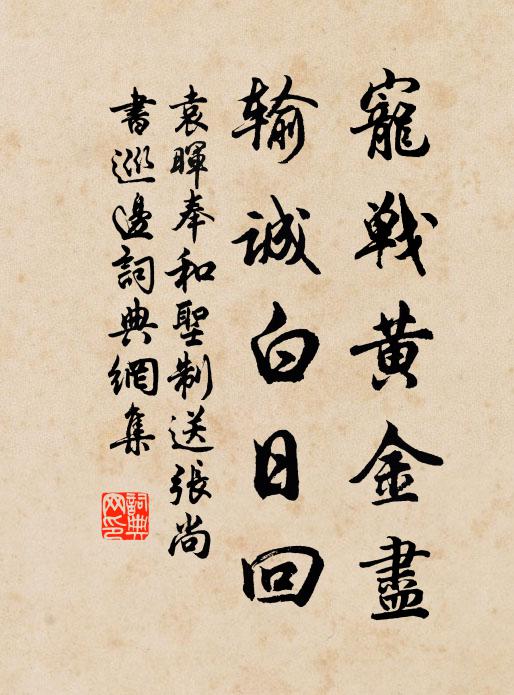 寵戦黄金盡
輸誠白日回
袁暉奉和聖制送張尚
書巡邊詞典網集
詞典
网印